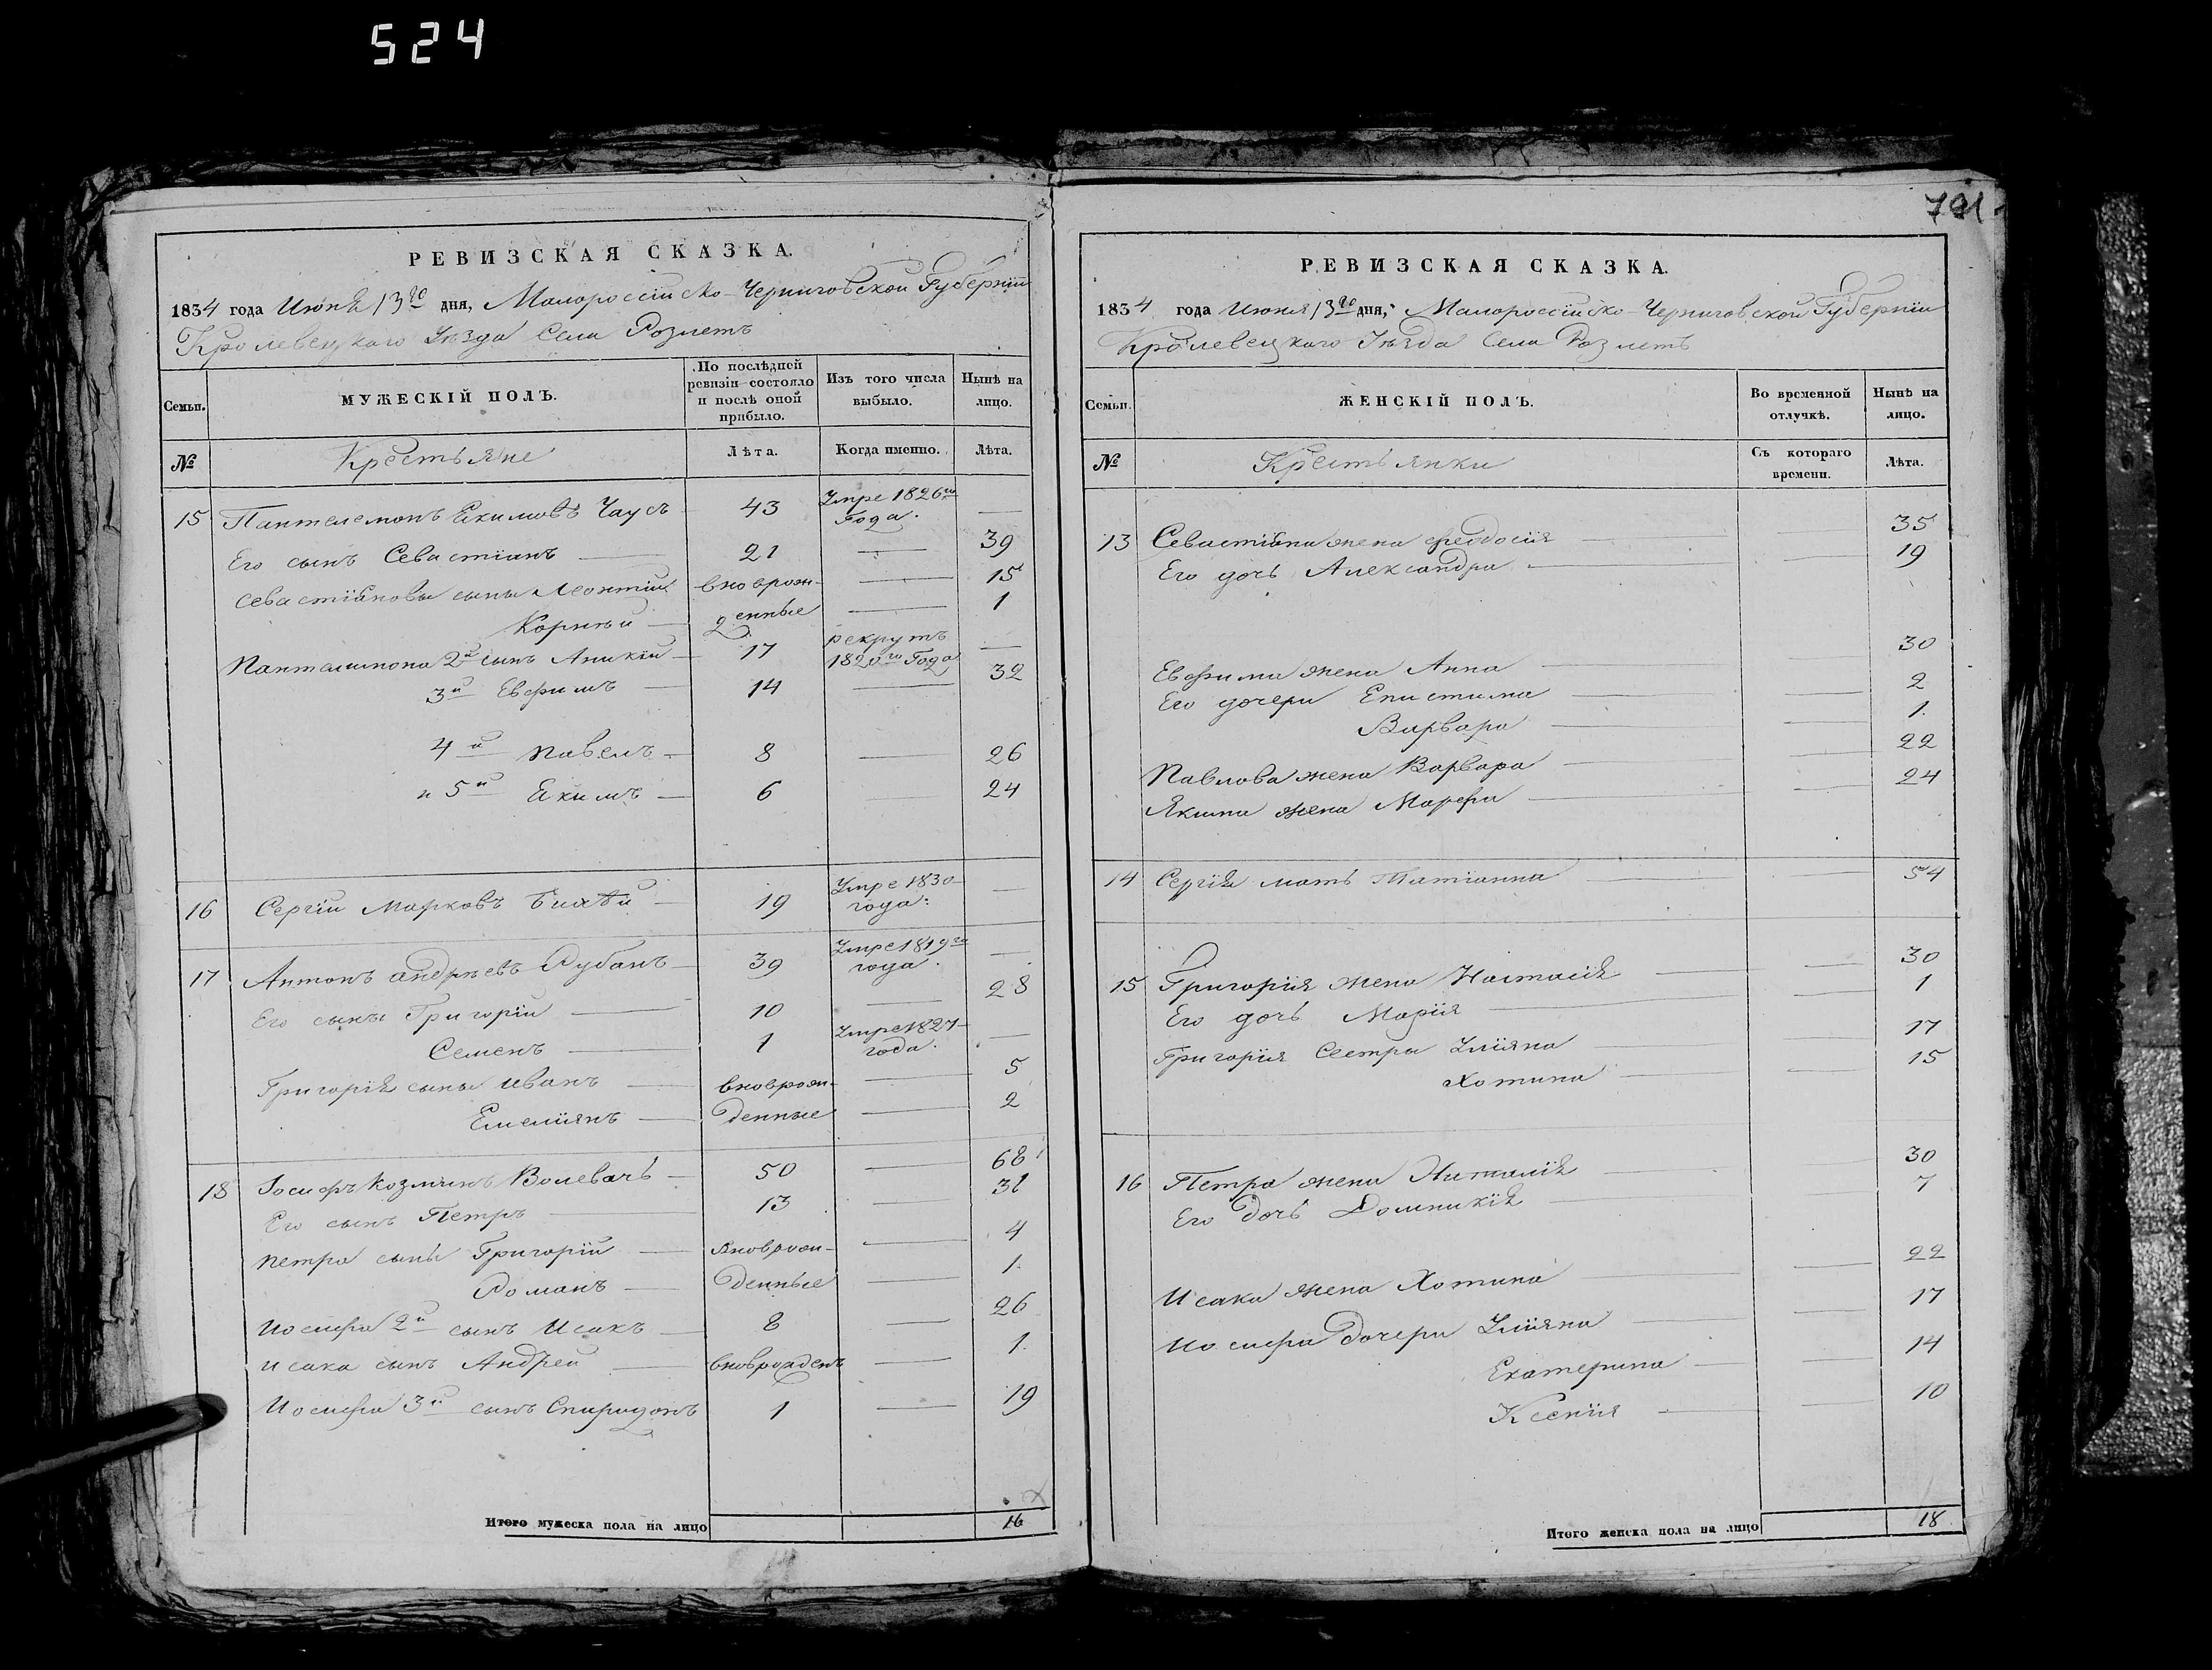 524
РЕВИЗСКАЯ СКАЗКА.
1834 года Июня 13го дня, Малороссийско-Черниговской Губернїи
Кролевецкаго Уѣзда Села Розлетъ
Семьи. МУЖЕСКІЙ ПОЛЪ. По послѣдней ревизіи состояло и послѣ оной прибыло. Изъ того числа выбыло. Нынѣ на лицо.
№ Крестьяне Лѣта. Когда именно. Лѣта.
15 Пантелемонъ Екимовъ Чаусъ 43 Умре 1826го Года. —
Его сынъ Севастіанъ — 21 — 39
Севастїанова сыны Леонтїй вноврож- — 15
Корнѣй — денные — 1
Пантелимона 2й сынъ Аникїй — 17 рекрутъ 1820го Года —
3й Евфимъ — 14 — 32
4й Павелъ — 8 — 26
и 5й Екимъ — 6 — 24
16 Сергїй Марковъ — 19 Умре 1830 года: —
17 Антонъ Андрѣевъ Рубанъ — 39 Умре 1819го года. —
Его сыны Григорїй — 10 — 28
Семенъ — 1 Умре 1827 года. —
Григорїя сыны Иванъ — вноврож- — 5
Емелїянъ — денные — 2
18 Іосифъ Козминъ Волевачь — 50 — 68
Его сынъ Петръ — 13 — 31
Петра сыны Григорїй — вноврож- — 4
Романъ — денные — 1.
Иосифа 2й сынъ Исакъ — 8 — 26
Исака сынъ Андрей — вноврожденъ — 1.
Иосифа 3й сынъ Спиридонъ 1 — 19
Итого мужеска пола на лицо 16
791
РЕВИЗСКАЯ СКАЗКА.
1834 года Июня 13го дня, Малороссїйско-Черниговской Губернїи
Кролевецкаго Уѣзда Села Розлетъ
Семьи. ЖЕНСКІЙ ПОЛЪ. Во временной отлучкѣ. Нынѣ на лицо.
№ Крестьянки Съ котораго времени. Лѣта.
13 Севастїана жена Феодосїя — — 35
Его дочь Александра — — 19
Евфима жена Анна — — 30
Его дочери Епистима — — 2
Варвара — — 1.
Павлова жена Варвара — — 22
Якима жена Марфа — — 24
14 Сергїя мать Татїанна — — 54
15 Григорїя жена Настасїя — — 30
Его дочь Марїя — — 1
Григорїя Сестры Улїяна — 17
Хотина — — 15
16 Петра жена Наталїя — — 30
Его дочь Домникїя — — 7
Исака жена Хотина — — 22
Иосифа дочери Улїяна — — 17
Екатерина — — 14
Ксенїя — — 10
Итого женска пола на лицо 18